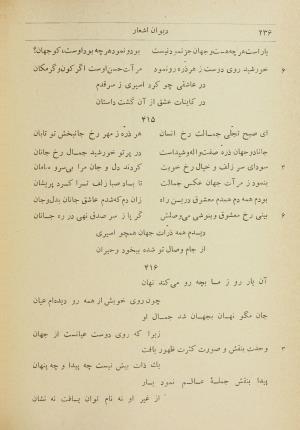 ۲۳۶ دیوان اشعار
یار است هر چه هست و جهان جز نمود نیست بود و نمود هر چه بود اوست، کو جهان؟
خورشید روی دوست ز هر ذره رو نمود مرآت حسن اوست اگر کون و گر مکان ۶
در عاشقی چو کرد اسیری ز سر قدم
در کاینات عشق از آن گشت داستان
۴۱۵
ای صبح تجلی جمالت رخ انسان هر ذره ز مهر رخ جانبخش تو تابان
جانا دو جهان ذره صفت واله و شیداست در پرتو خورشید جمال رخ جانان
سودای سر زلف و خیال رخ خوبت کردند دل و جان مرا بی سر و سامان ۳
بنمود ز مرآت جهان عکس جمالت تا باد صبا زلف ترا کرد پریشان
بودم همه دم همدم معشوق درین راه زان دم که شدم عاشق جانان بدل و جان
بینی رخ معشوق و بنوشی می وصلش گر پا ز سر صدق نهی در ره جانان ۶
دیدم همه ذرات جهان همچو اسیری
از جام وصال تو شده بیخود و حیران
۴۱۶
آن یار رو ز ما بچه رو می کند نهان
چون روی خویش از همه رو دیده ام عیان
جان مگو نهان بجهان شد جمال او
زیرا که روی دوست عیانست از جهان
وحدت بنقش و صورت کثرت ظهور یافت ۳
یک ذات بیش نیست چه پیدا و چه پنهان
پیدا بنقش جملهٔ عالم نمود یار
از غیر او نه نام توان یافت نه نشان